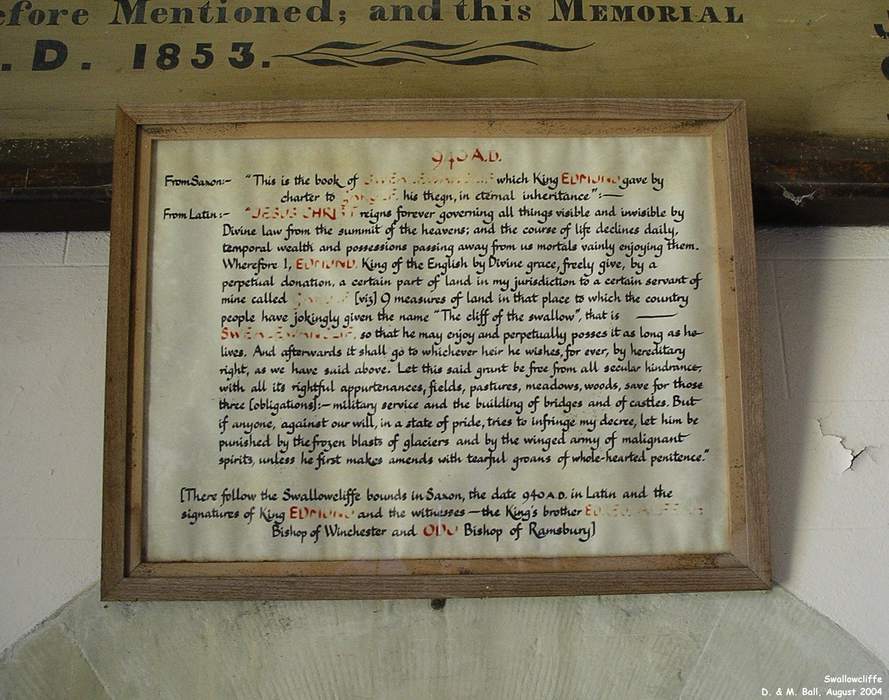 efore Mentioned; and this MEMORIAL
.D. 1853.
940 A.D.
From Saxon:- "This is the book of which King EDMUND gave by
charter to his thegn, in eternal inheritance":—
From Latin:- "JESUS CHRIST reigns forever governing all things visible and invisible by
Divine law from the summit of the heavens; and the course of life declines daily,
temporal wealth and possessions passing away from us mortals vainly enjoying them.
Wherefore I, EDMUND, King of the English by Divine grace, freely give, by a
perpetual donation, a certain part of land in my jurisdiction to a certain servant of
mine called [viz] 9 measures of land in that place to which the country
people have jokingly given the name "The cliff of the swallow", that is —
so that he may enjoy and perpetually possess it as long as he
lives. And afterwards it shall go to whichever heir he wishes, for ever, by hereditary
right, as we have said above. Let this said grant be free from all secular hindrance,
with all its rightful appurtenances, fields, pastures, meadows, woods, save for those
three [obligations]:— military service and the building of bridges and of castles. But
if anyone, against our will, in a state of pride, tries to infringe my decree, let him be
punished by the frozen blasts of glaciers and by the winged army of malignant
spirits, unless he first makes amends with tearful groans of whole-hearted penitence."
[There follow the Swallowcliffe bounds in Saxon, the date 940 A.D. in Latin and the
signatures of King EDMUND and the witnesses — the King's brother
Bishop of Winchester and ODO Bishop of Ramsbury]
Swallowcliffe
D. & M. Ball, August 2004